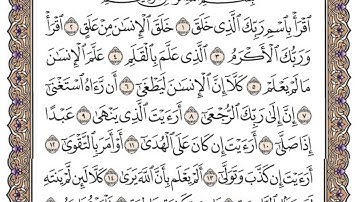 ٱقۡرَأۡ بِٱسۡمِ رَبِّكَ ٱلَّذِي خَلَقَ ١ خَلَقَ ٱلۡإِنسَٰنَ مِنۡ عَلَقٍ ٢ ٱقۡرَأۡ
وَرَبُّكَ ٱلۡأَكۡرَمُ ٣ ٱلَّذِي عَلَّمَ بِٱلۡقَلَمِ ٤ عَلَّمَ ٱلۡإِنسَٰنَ
مَا لَمۡ يَعۡلَمۡ ٥ كَلَّآ إِنَّ ٱلۡإِنسَٰنَ لَيَطۡغَىٰٓ ٦ أَن رَّءَاهُ ٱسۡتَغۡنَىٰٓ
٧ إِنَّ إِلَىٰ رَبِّكَ ٱلرُّجۡعَىٰٓ ٨ أَرَءَيۡتَ ٱلَّذِي يَنۡهَىٰ ٩ عَبۡدًا
إِذَا صَلَّىٰٓ ١٠ أَرَءَيۡتَ إِن كَانَ عَلَى ٱلۡهُدَىٰٓ ١١ أَوۡ أَمَرَ بِٱلتَّقۡوَىٰٓ ١٢
أَرَءَيۡتَ إِن كَذَّبَ وَتَوَلَّىٰٓ ١٣ أَلَمۡ يَعۡلَم بِأَنَّ ٱللَّهَ يَرَىٰ ١٤ كَلَّا لَئِن لَّمۡ يَنتَهِ